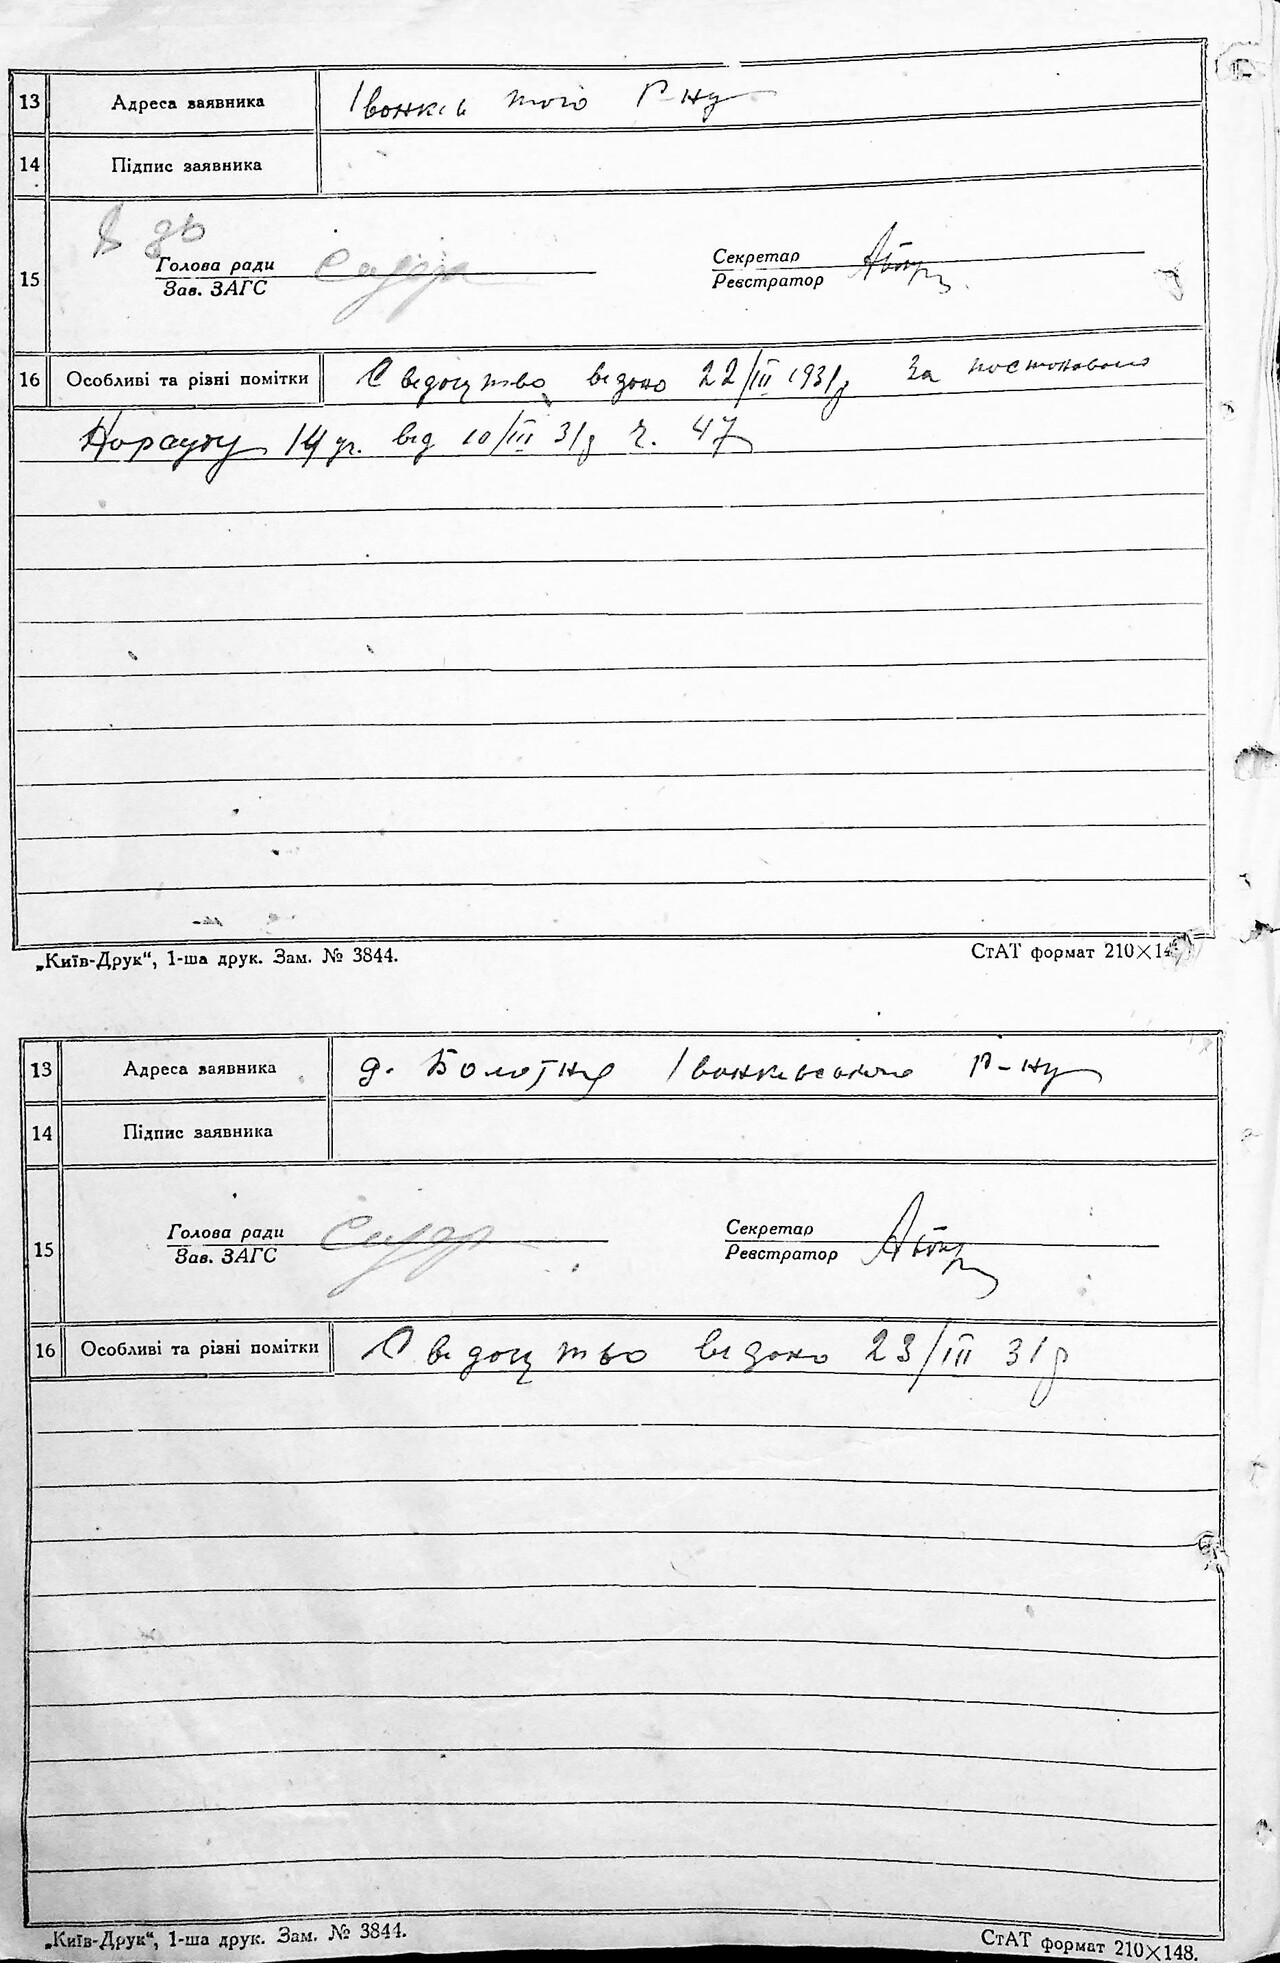 13 Адреса заявника Іванків того р-ну
14 Підпис заявника
15 Голова ради Секретар
Зав. ЗАГС Реєстратор
16 Особливі та різні помітки Свідоцтво відано 22/III 1931р За постоновою
Нарсуду 14 уч. від 10/III 31р ч. 47
„Київ-Друк“, 1-ша друк. Зам. № 3844. СтАТ формат 210×14
13 Адреса заявника д. Болотня Іванківського р-ну
14 Підпис заявника
15 Голова ради Секретар
Зав. ЗАГС Реєстратор
16 Особливі та різні помітки Свідоцтво відано 23/III 31р
„Київ-Друк“, 1-ша друк. Зам. № 3844. СтАТ формат 210×148.